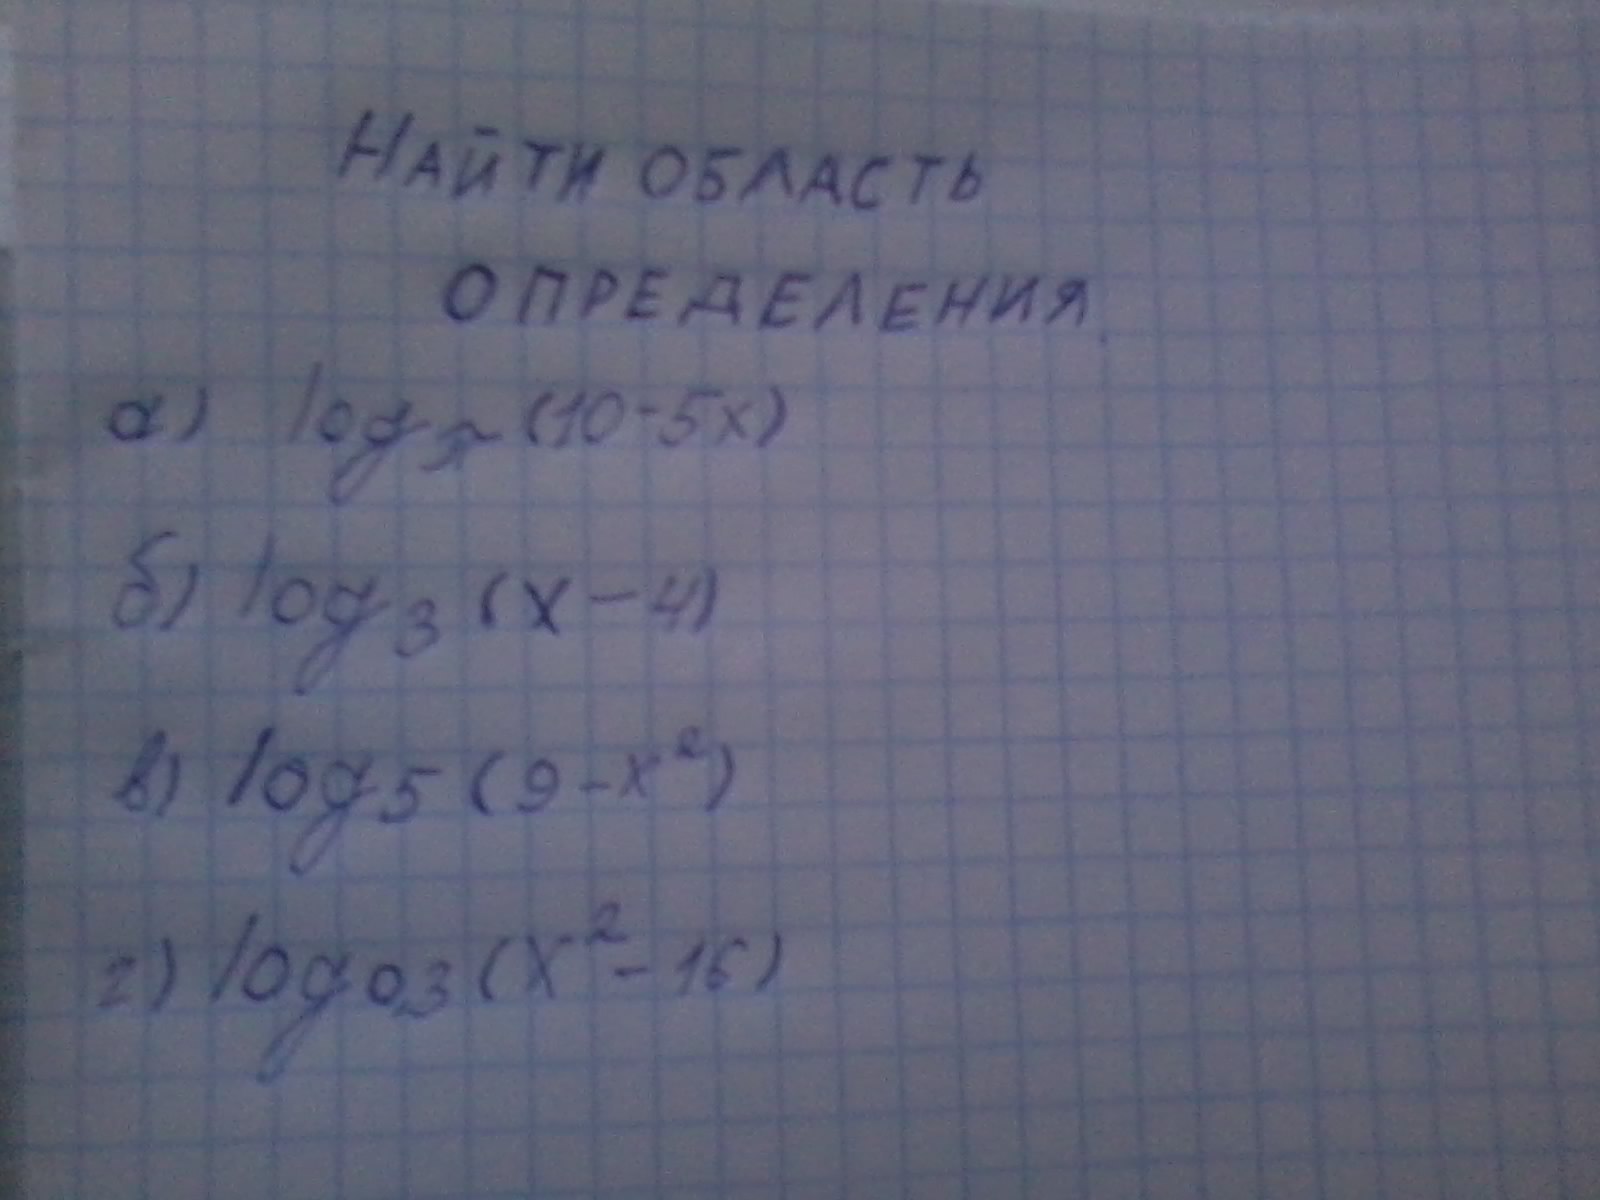 НАЙТИ ОБЛАСТЬ
ОПРЕДЕЛЕНИЯ.
а) log π (10-5x)
б) log 3 (x-4)
в) log 5 (9-x²)
г) log 0,3 (x²-16)